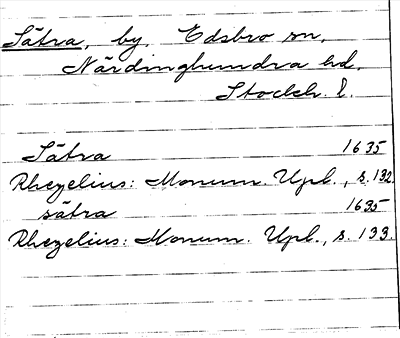 Sätra, by, Edsbro sn,
Närdinghundra hd.
Stockh. l.
Sätra 1635
Rhezelius: Monum. Upl., s. 132.
sätra 1635
Rhezelius: Monum. Upl., s. 133.